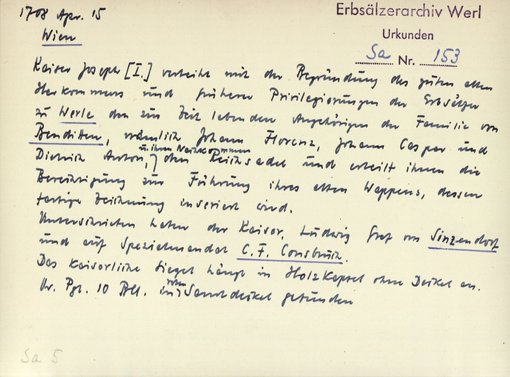 1708 Apr. 15
Wien
Erbsälzerarchiv Werl
Urkunden
Sa Nr. 153
Kaiser Joseph [I.] verleiht mit der Begründung des guten alten
Herkommens und früherer Privilegierungen der Erbsälzer
zu Werle den zur Zeit lebenden Angehörigen der Familie von
Benditten, nämlich Johann Florenz, Johann Caspar und
Dietrich Anton, u. ihren Nachkommen den Reichsadel und erteilt ihnen die
Berechtigung zur Führung ihres alten Wappens, dessen
farbige Zeichnung inseriert wird.
Unterschrieben haben der Kaiser, Ludwig Graf von Sinzendorf
und auf Spezialmandat C. F. Consbruch.
Das kaiserliche Siegel hängt in Holzkapsel ohne Deckel an.
Or. Pgt. 10 Bll. in roten Samtdeckel gebunden
Sa 5